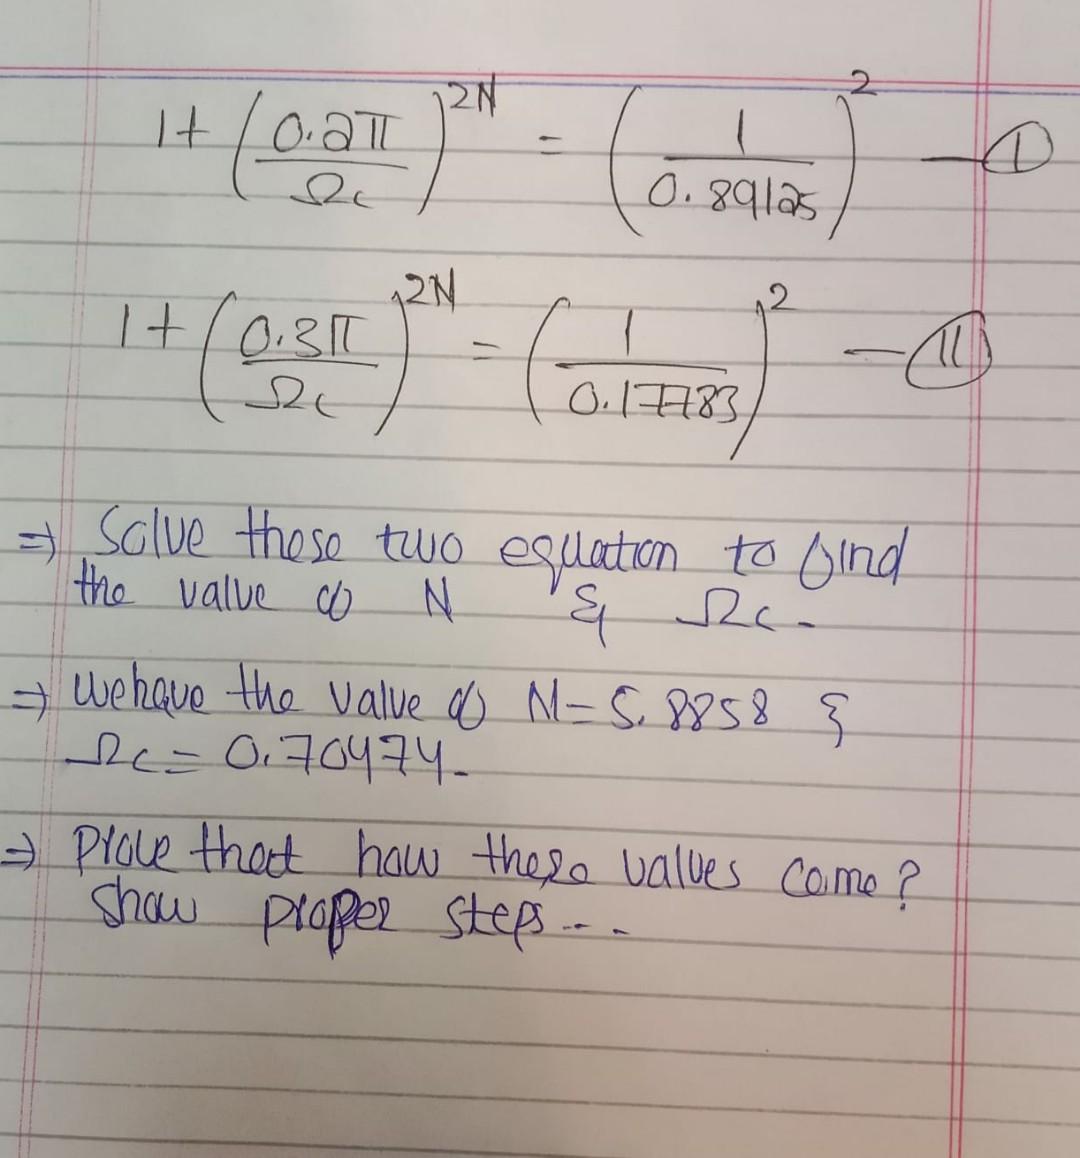 1 + (0.2π / Ωc)^2N = (1 / 0.89125)^2 — I
1 + (0.3π / Ωc)^2N = (1 / 0.17783)^2 — II
⇒ Solve these two equation to find
the value of N & Ωc.
⇒ We have the value of N = 5.8858 &
Ωc = 0.70474.
⇒ Prove that how these values come?
Show proper steps...